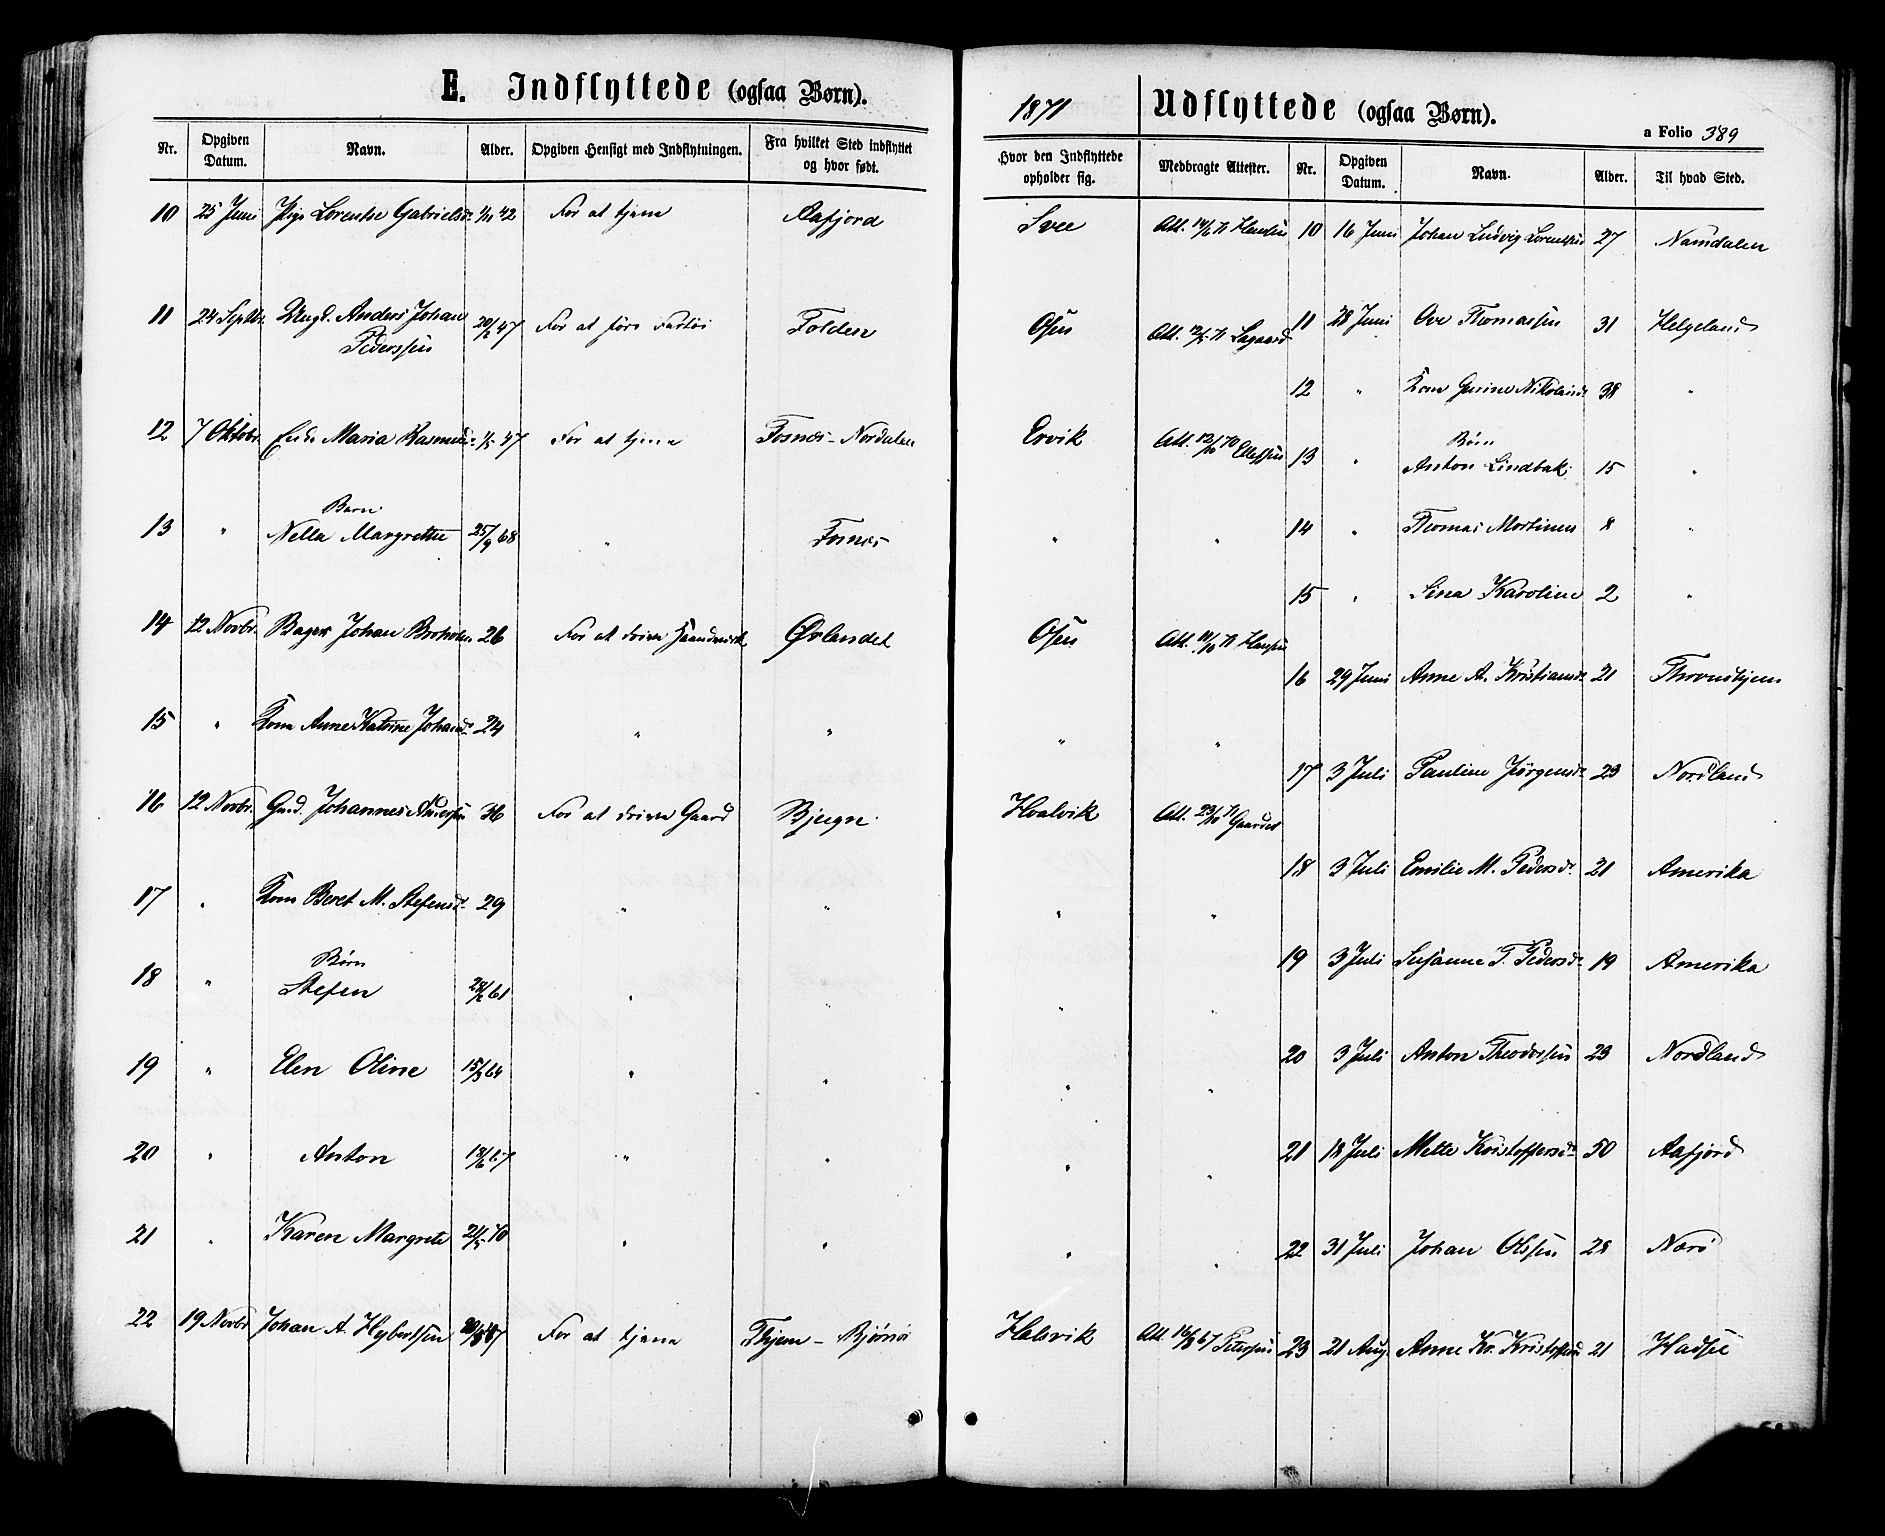 E. Indflyttede (ogsaa Børn).
1871 Udflyttede (ogsaa Børn).
a Folio 389
Nr. Opgiven Datum. Navn. Alder. Opgiven Hensigt med Indflytningen. Fra hvilket Sted indflyttet og hvor født. Hvor den Indflyttede opholder sig. Medbragte Attester.
10 25 Juni Pige Lorentse Gabrielsd. 42 For at tjene Aafjord Svee Att. 14/6 71
11 24 Septbr. Ungk. Anders Johan Pederssen 20/2 47 For at føre Fartøi Folden Osen Att. Lagaard
12 7 Oktobr. Enke Maria Rasmusd. 47 For at tjene Fosnæs - Nordalen Ervik Att. 12/10 70 Ellefsen
13 " Barn Nella Margrethe 25/9 68 " Fosnæs " "
14 12 Novbr. Bager Johan 26 For at drive Haandværk Ørlandet Osen Att. 11/10 71
15 " Kone Anne Katrine Johansd. 24 " " " "
16 12 Novbr. Gmd. Johannes Anderssen 36 For at drive Gaard Bjugn Hvalvik Att. 23/10 71
17 " Kone Beret M. Stefensd. 29 " " " "
18 " Børn Stefen 61 " " " "
19 " Elen Oline 15/3 64 " " " "
20 " Anton 67 " " " "
21 " Karen Margrete 70 " " " "
22 19 Novbr. Johan A. Hybertsen For at tjene Bjørnør Halsvik Att. 67 Peterssen
Nr. Opgiven Datum. Navn. Alder. Til hvad Sted.
10 16 Juni Johan Ludvig Lorentsen 27 Namdalen
11 28 Juni Ove Thomassen 31 Helgeland
12 " Kone Gurine Nikolaisd. 38 "
13 " Børn Anton Lindbak 15 "
14 " Thomas Mortinus 8 "
15 " Sina Karoline 2 "
16 29 Juni Anne A. Kristiansd. 21 Throndhjem
17 3 Juli Pauline Jørgensd. 23 Nordland
18 3 Juli Emilie M. Pedersd. 21 Amerika
19 3 Juli Susanne P. Pedersd. 19 Amerika
20 3 Juli Anton Theodorsen 23 Nordland
21 18 Juli Mette Kristoffersd. 50 Aafjord
22 31 Juli Johan Olssen 28 Nærø
23 21 Aug. Anne Kr. Kristoffersd. 21 Hadsel